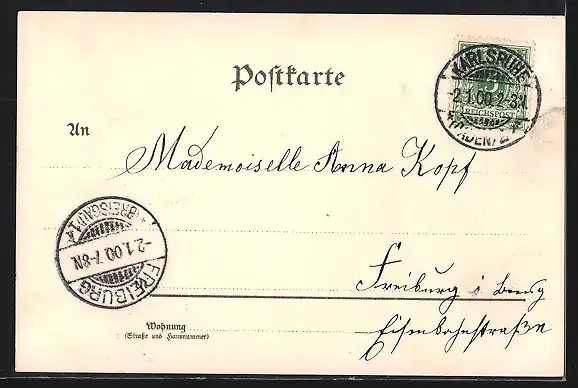 Postkarte
KARLSRUHE
-2.1.00.2-3N
(BADEN) 2
5
REICHSPOST
An
Mademoiselle Anna Kopf
* (BREISGAU) 1 *
-2.1.00.7-8N
FREIBURG
Freiburg i. Breisg
Wohnung
(Straße und Hausnummer)
Eisenbahnstraße